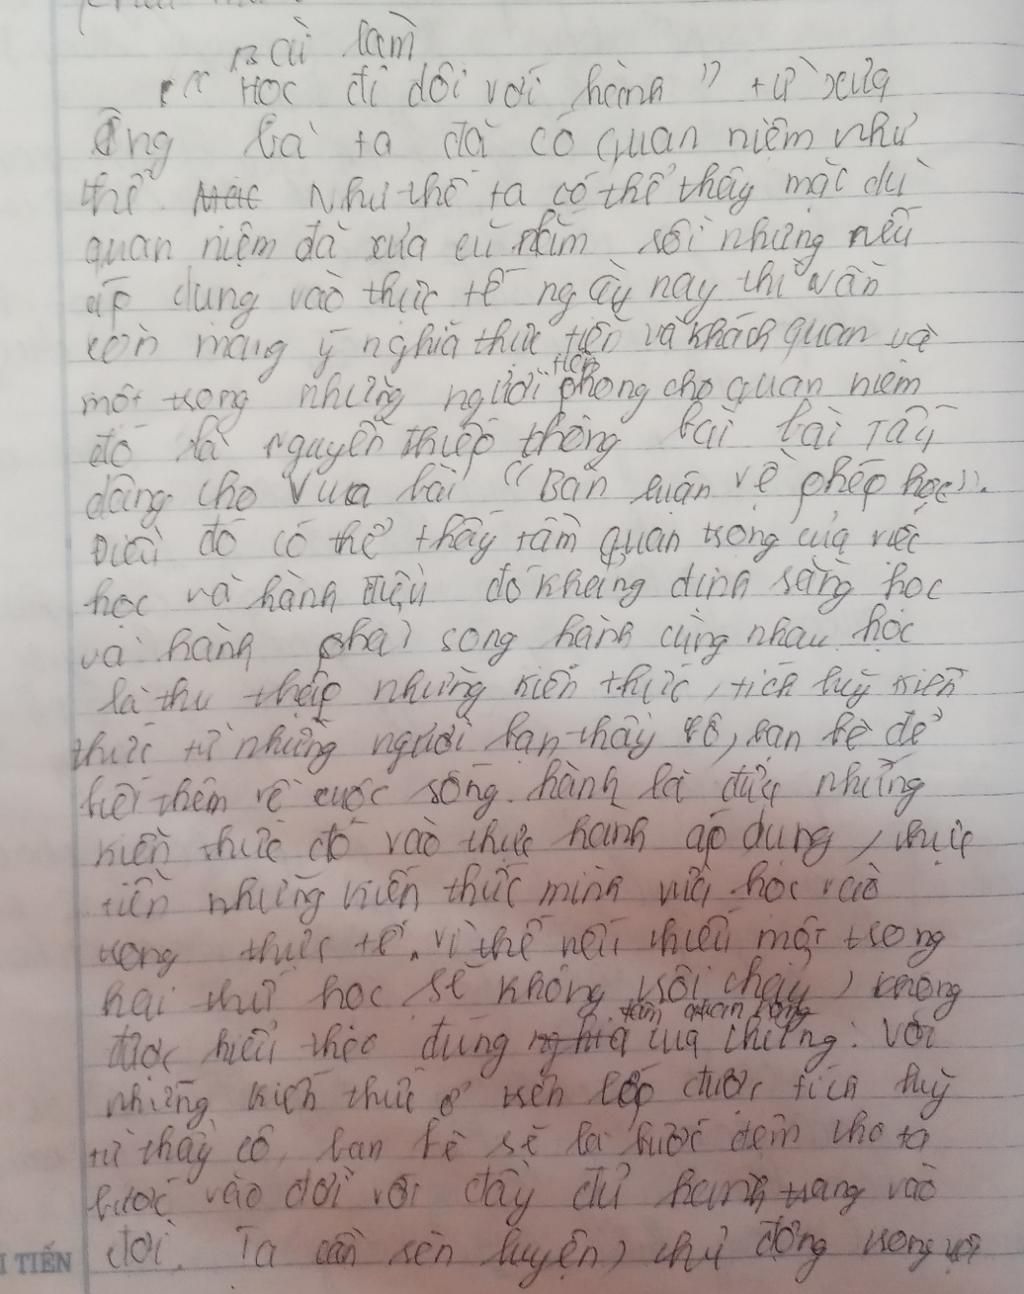 Bài làm
"Học đi đôi với hành" từ xưa
ông bà ta đã có quan niệm như
thế. Như thế ta có thể thấy mặc dù
quan niệm đã xưa cũ rồi nhưng nếu
áp dụng vào thực tế ngày nay thì vẫn
còn mang ý nghĩa thực tiễn và khách quan và
một trong những người tiên phong cho quan niệm
đó là Nguyễn Thiếp thông bài bài Tấu
dâng cho Vua bài "Bàn luận về phép học".
Điều đó có thể thấy tầm quan trọng của việc
học và hành điều đó khẳng định rằng học
và hành phải song hành cùng nhau. học
là thu thập những kiến thức, tích luỹ kiến
thức từ những người bạn thầy cô, bạn bè để
biết thêm về cuộc sống. hành là đưa những
kiến thức đó vào thực hành áp dụng, thực
tiễn những kiến thức mình vừa học vào
trong thực tế. Vì thế nếu thiếu một trong
hai thứ học sẽ không trôi chảy, không
được hiểu theo đúng tầm quan trọng của chúng. Với
những kiến thức ở trên lớp được tích luỹ
từ thầy cô, bạn bè sẽ là bước đệm cho ta
bước vào đời với đầy đủ hành trang vào
đời. Ta cần rèn luyện, chủ động trong
TIẾN